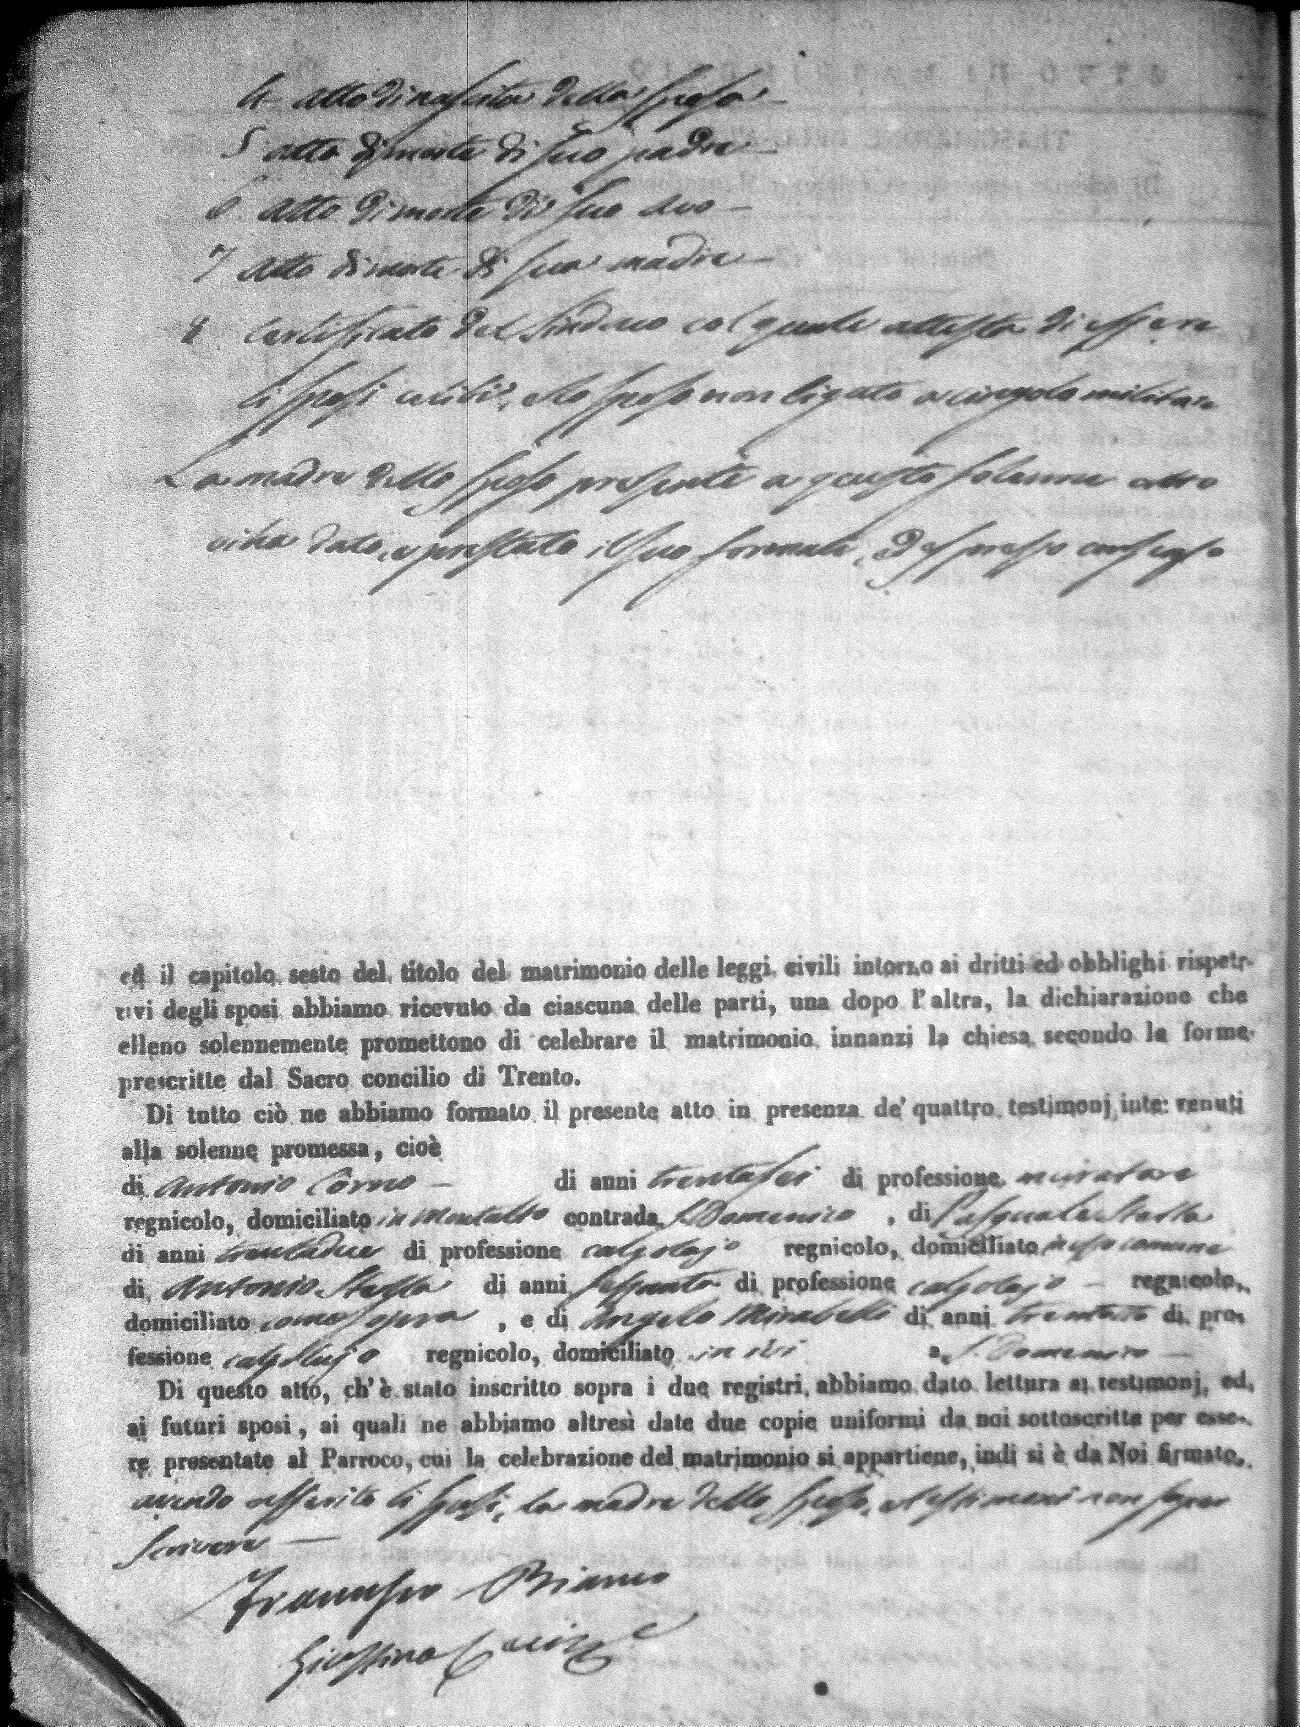 4 atto di nascita della sposa
5 atto di morte di suo padre
6 atto di morte di suo avo
7 atto di morte di sua madre
8 Certificato del Sindaco col quale attesta di essere
li sposi celibi, e lo sposo non ligato a cingolo militare
La madre dello sposo presente a questo solenne atto
ci ha dato, e prestato il suo formale, ed espresso consenso
ed il capitolo sesto del titolo del matrimonio delle leggi civili intorno ai dritti ed obblighi rispet-
tivi degli sposi abbiamo ricevuto da ciascuna delle parti, una dopo l'altra, la dichiarazione che
elleno solennemente promettono di celebrare il matrimonio innanzi la chiesa secondo le forme
prescritte dal Sacro concilio di Trento.
Di tutto ciò ne abbiamo formato il presente atto in presenza de' quattro testimonj intervenuti
alla solenne promessa, cioè
di Antonio Corno di anni trentasei di professione muratore
regnicolo, domiciliato in Montalto contrada S. Domenico, di Pasquale Stella
di anni trentadue di professione calzolajo regnicolo, domiciliato in esso comune
di Antonio Stella di anni sessanta di professione calzolajo regnicolo,
domiciliato come sopra, e di Angelo Mirabelli di anni trenta di pro-
fessione calzolajo regnicolo, domiciliato in ivi a S. Domenico
Di questo atto, ch'è stato inscritto sopra i due registri, abbiamo dato lettura ai testimonj, ed
ai futuri sposi, ai quali ne abbiamo altresì date due copie uniformi da noi sottoscritte per esse-
re presentate al Parroco, cui la celebrazione del matrimonio si appartiene, indi si è da Noi firmato,
avendo asserito li sposi, la madre dello sposo, e testimoni non saper
scrivere
Francesco Bianco